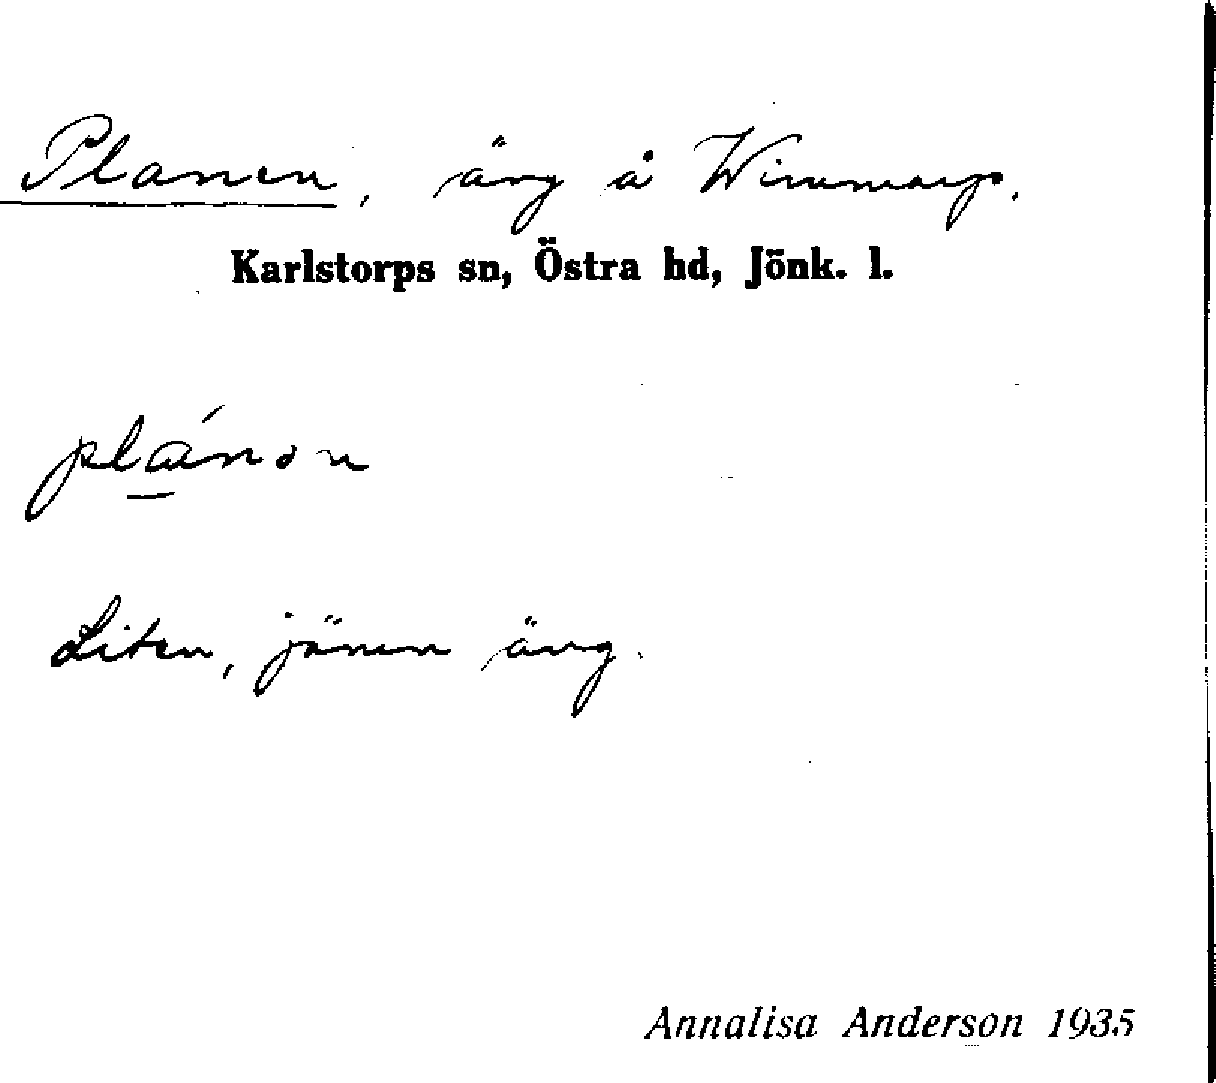 Planen, äng å Wimmarp.
Karlstorps sn, Östra hd, Jönk. l.
plánon
Liten, jämn äng.
Annalisa Anderson 1935